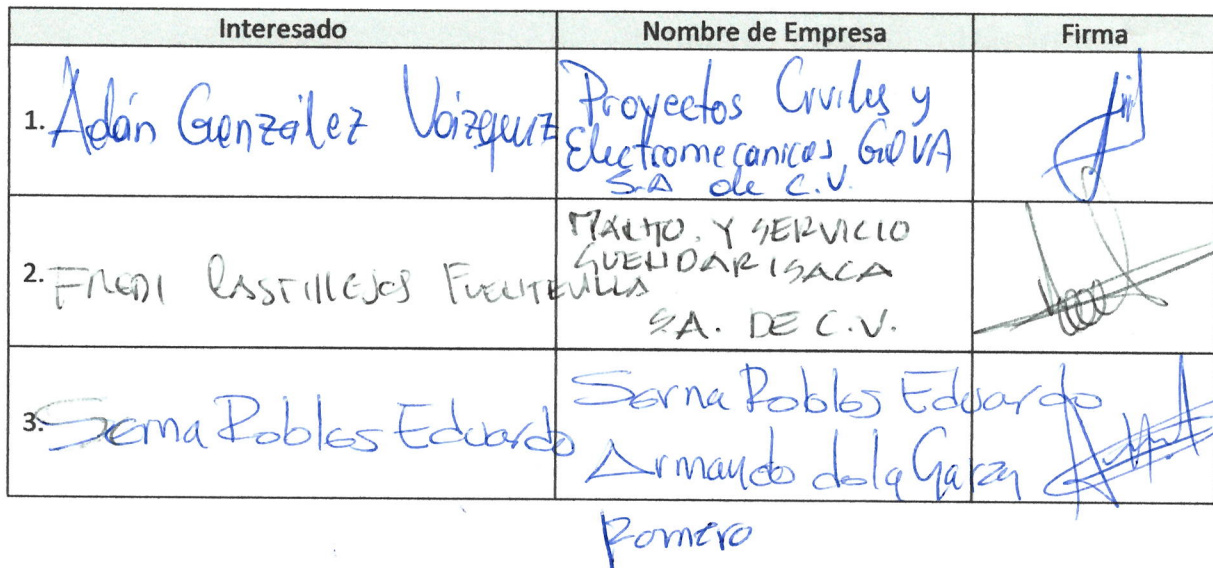 Interesado Nombre de Empresa Firma
1. Adán González Vázquez
Proyectos Civiles y
Electromecanicos GOVA
S.A de C.V.
2. FREDI CASTILLEJOS FUENTEVILLA
MALMO. Y SERVICIO
GUENDARISACA
SA. DE C.V.
3. Serna Robles Eduardo
Serna Robles Eduardo
Armando de la Garza
Romero